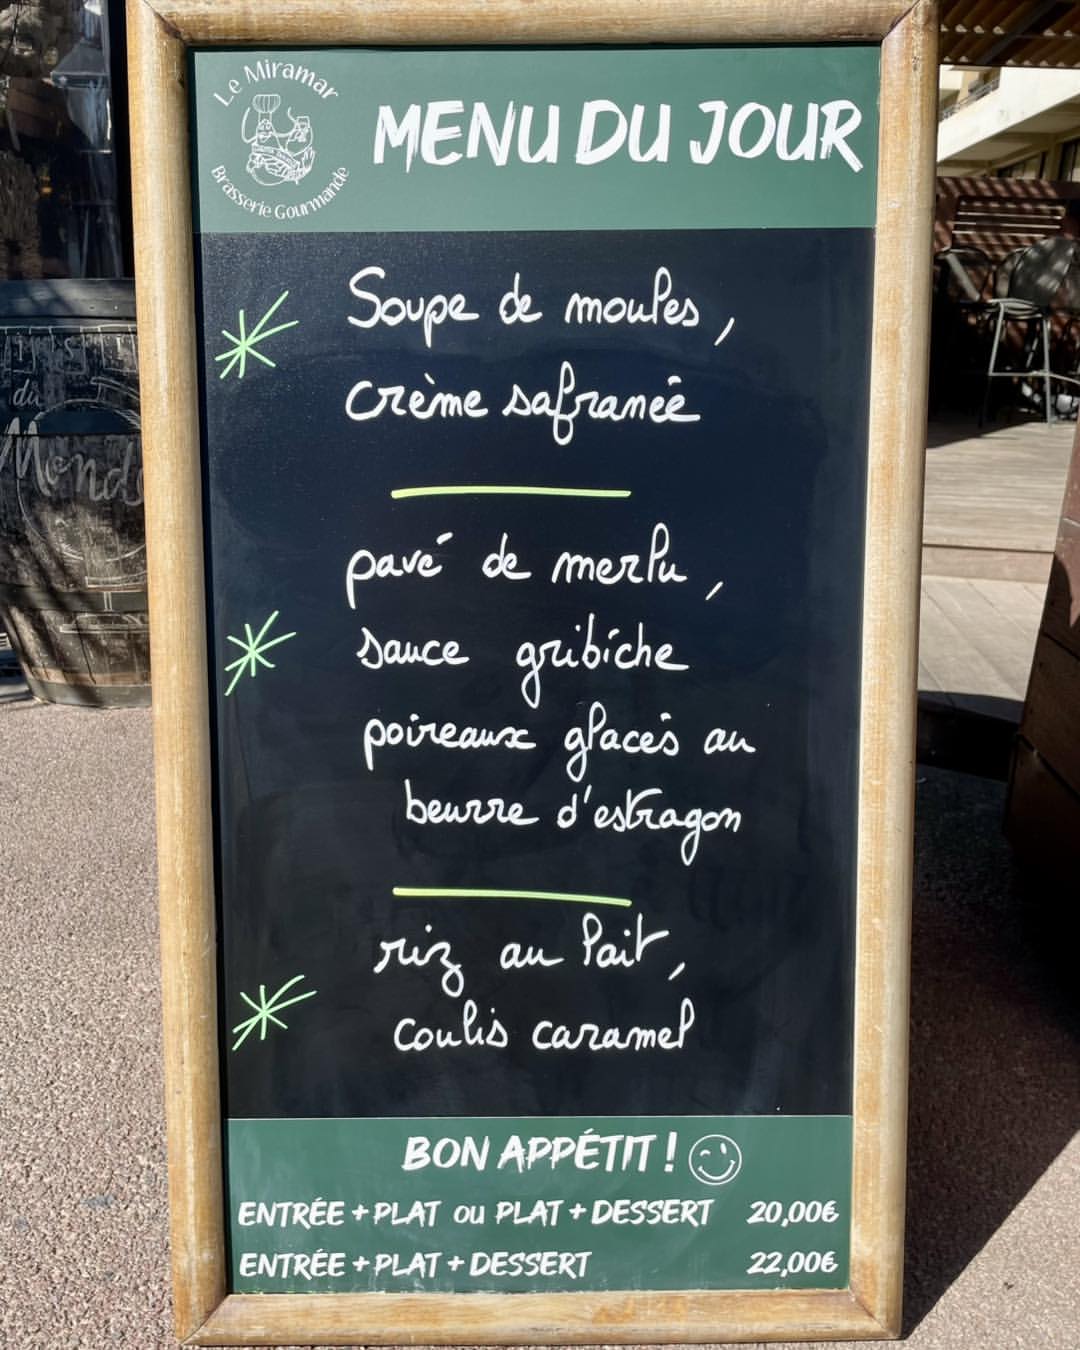 Le Miramar
Brasserie Gourmande
MENU DU JOUR
Soupe de moules,
crème safranée
pavé de merlu,
sauce gribiche
poireaux glacés au
beurre d'estragon
riz au lait,
coulis caramel
BON APPÉTIT !
ENTRÉE + PLAT OU PLAT + DESSERT 20,00€
ENTRÉE + PLAT + DESSERT 22,00€
du